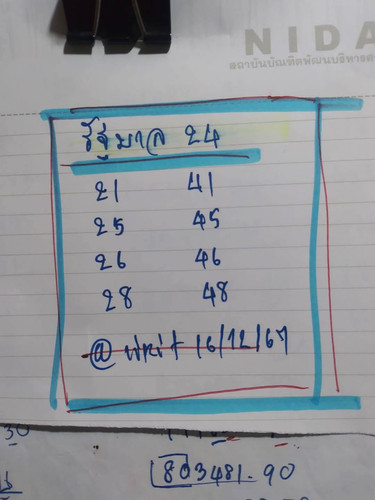 NIDA
สถาบันบัณฑิตพัฒนบริหารศา
รัฐบาล 24
21 41
25 45
26 46
28 48
16/12/67
30
803481-90